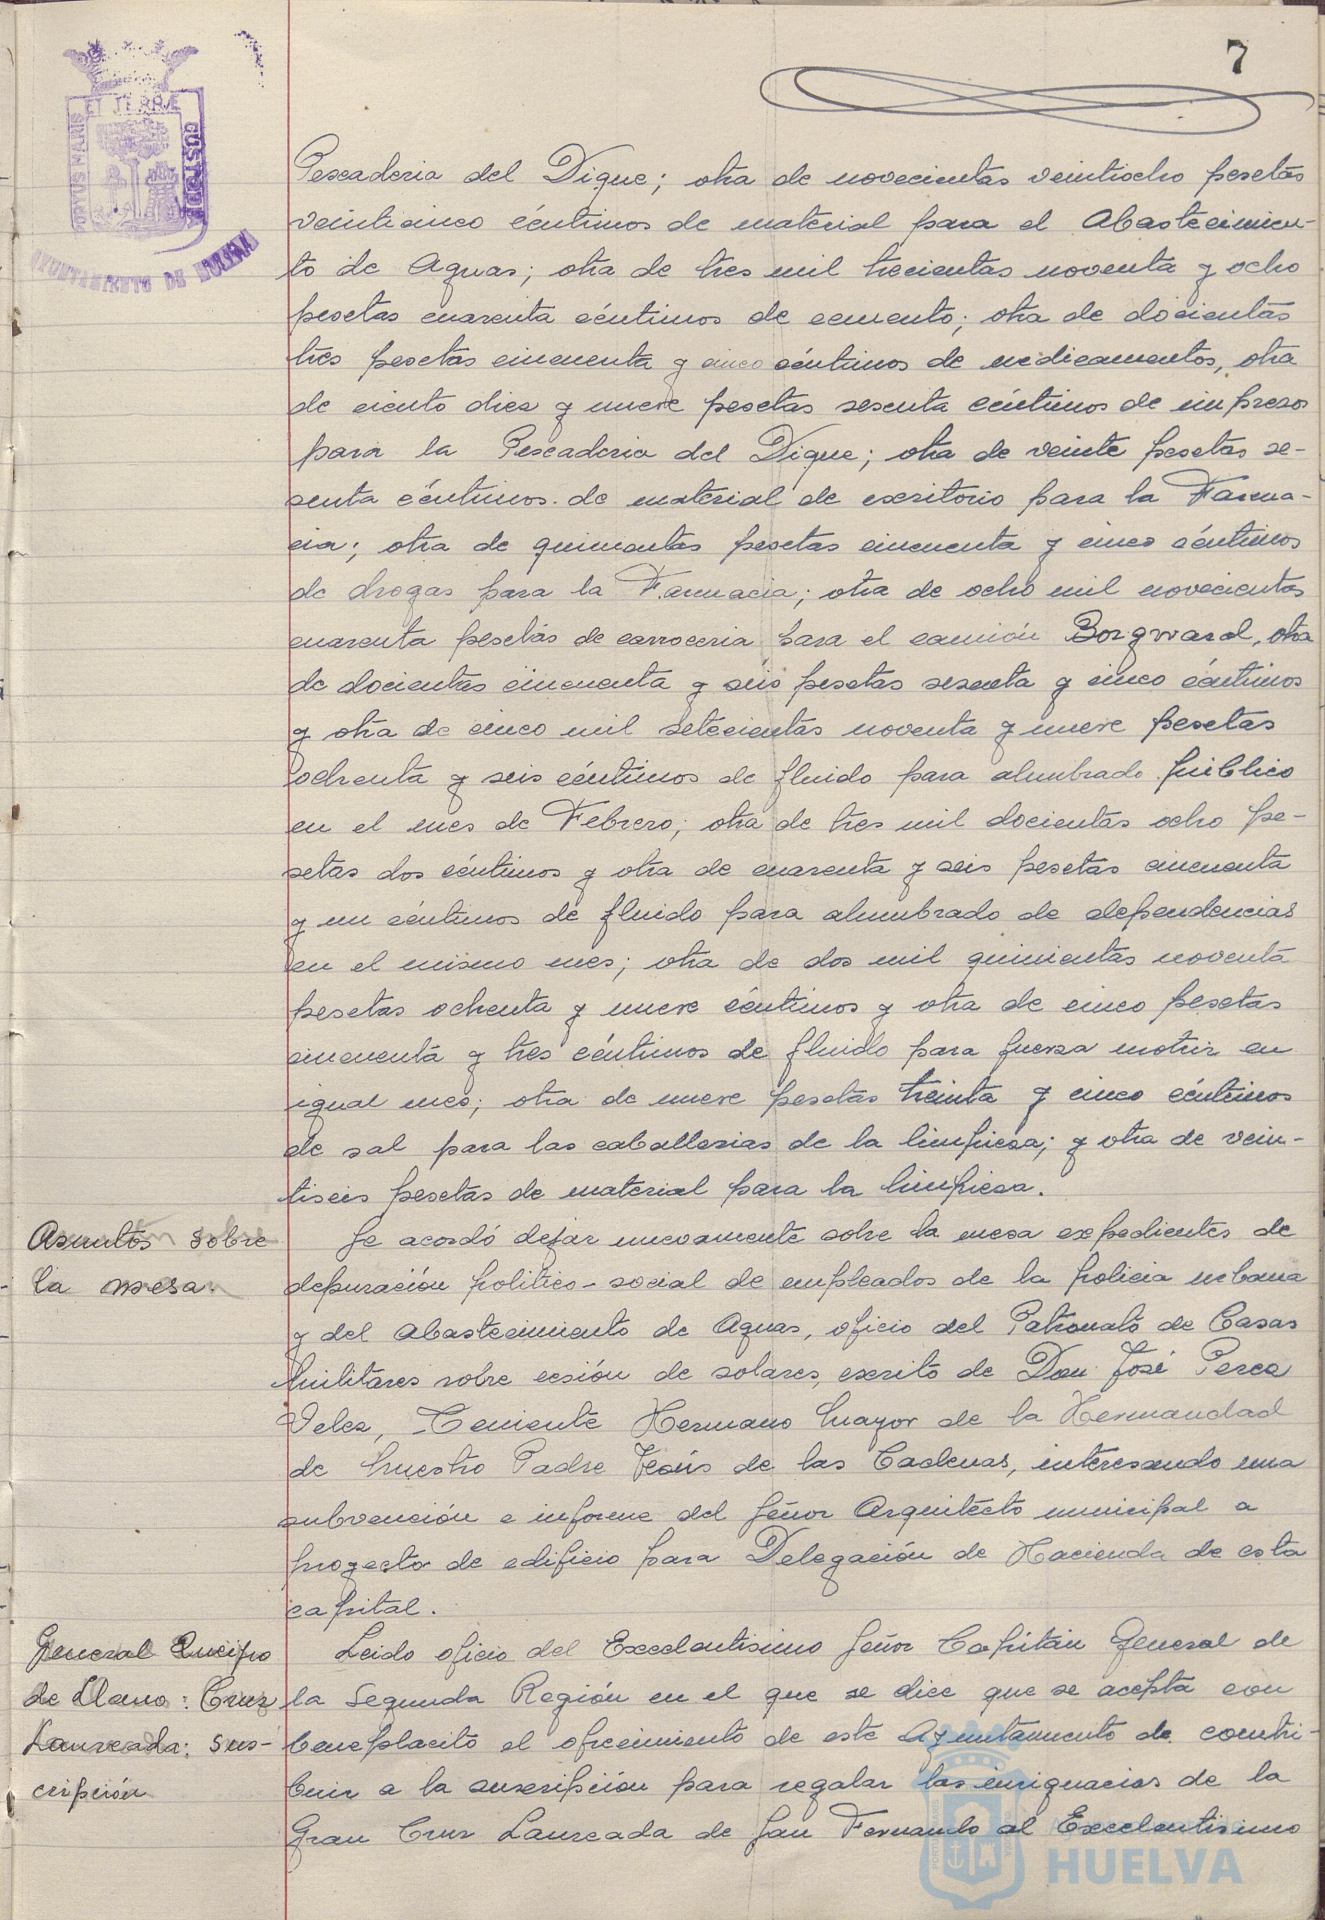 7
PORTUS MARIS ET TERRAE CUSTODIA
AYUNTAMIENTO DE HUELVA
Pescaderia del Dique; otra de novecientas veintiocho pesetas
veinticinco céntimos de material para el Abastecimien-
to de Aguas; otra de tres mil trecientas noventa y ocho
pesetas cuarenta céntimos de cemento; otra de docientas
tres pesetas cincuenta y cinco céntimos de medicamentos, otra
de ciento diez y nueve pesetas sesenta céntimos de impresos
para la Pescaderia del Dique; otra de veinte pesetas se-
senta céntimos de material de escritorio para la Farma-
cia; otra de quinientas pesetas cincuenta y cinco céntimos
de drogas para la Farmacia; otra de ocho mil novecientas
cuarenta pesetas de carroceria para el camión Borgward, otra
de docientas cincuenta y seis pesetas sesenta y cinco céntimos
y otra de cinco mil setecientas noventa y nueve pesetas
ochenta y seis céntimos de fluido para alumbrado público
en el mes de Febrero; otra de tres mil docientas ocho pe-
setas dos céntimos y otra de cuarenta y seis pesetas cincuenta
y un céntimos de fluido para alumbrado de dependencias
en el mismo mes; otra de dos mil quinientas noventa
pesetas ochenta y nueve céntimos y otra de cinco pesetas
cincuenta y tres céntimos de fluido para fuerza motriz en
igual mes; otra de nueve pesetas treinta y cinco céntimos
de sal para las caballerias de la limpieza; y otra de vein-
tiseis pesetas de material para la limpieza.
Asuntos sobre
la mesa.
Se acordó dejar nuevamente sobre la mesa expedientes de
depuración politico-social de empleados de la policia urbana
y del Abastecimiento de Aguas, oficio del Patronato de Casas
Militares sobre cesión de solares, escrito de Don José Perez
Velez, Teniente Hermano Mayor de la Hermandad
de Nuestro Padre Jesús de las Cadenas, interesando una
subvención e informe del Señor Arquitecto municipal a
proyecto de edificio para Delegación de Hacienda de esta
capital.
General Queipo
de Llano: Cruz
Laureada: sus-
cripción
Leido oficio del Excelentisimo Señor Capitán General de
la Segunda Región en el que se dice que se acepta con
beneplacito el ofrecimiento de este Ayuntamiento de contri-
buir a la suscripción para regalar las insignacias de la
Gran Cruz Laureada de San Fernando al Excelentisimo
HUELVA